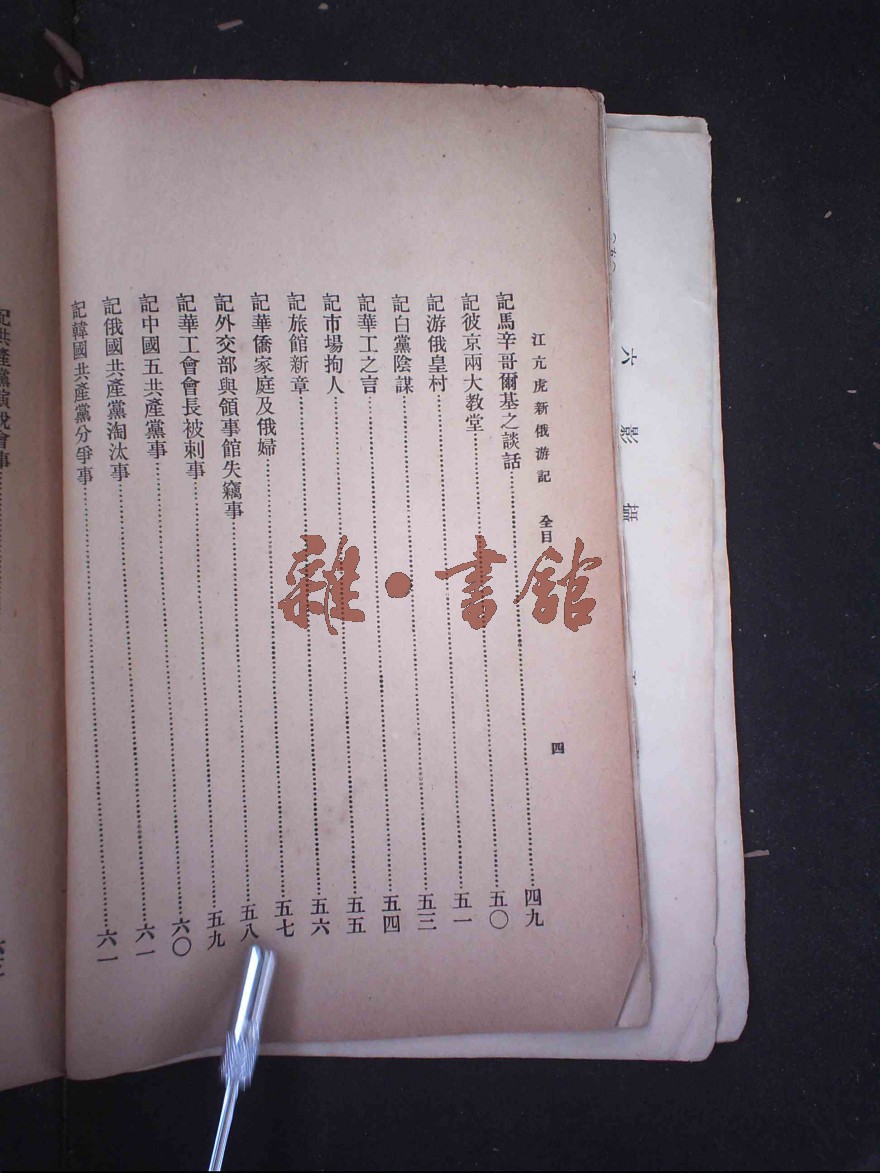 六影攝
江亢虎新俄游記　全目　四
記馬辛哥爾基之談話……四九
記彼京兩大教堂……五〇
記游俄皇村……五一
記白黨陰謀……五三
記華工之言……五四
記市場拘人……五五
記旅館新章……五六
記華僑家庭及俄婦……五七
記外交部與領事館失竊事……五八
記華工會會長被刺事……五九
記中國五共產黨事……六〇
記俄國共產黨淘汰事……六一
記韓國共產黨分爭事……六一
記共產黨演說會事
雜·書館